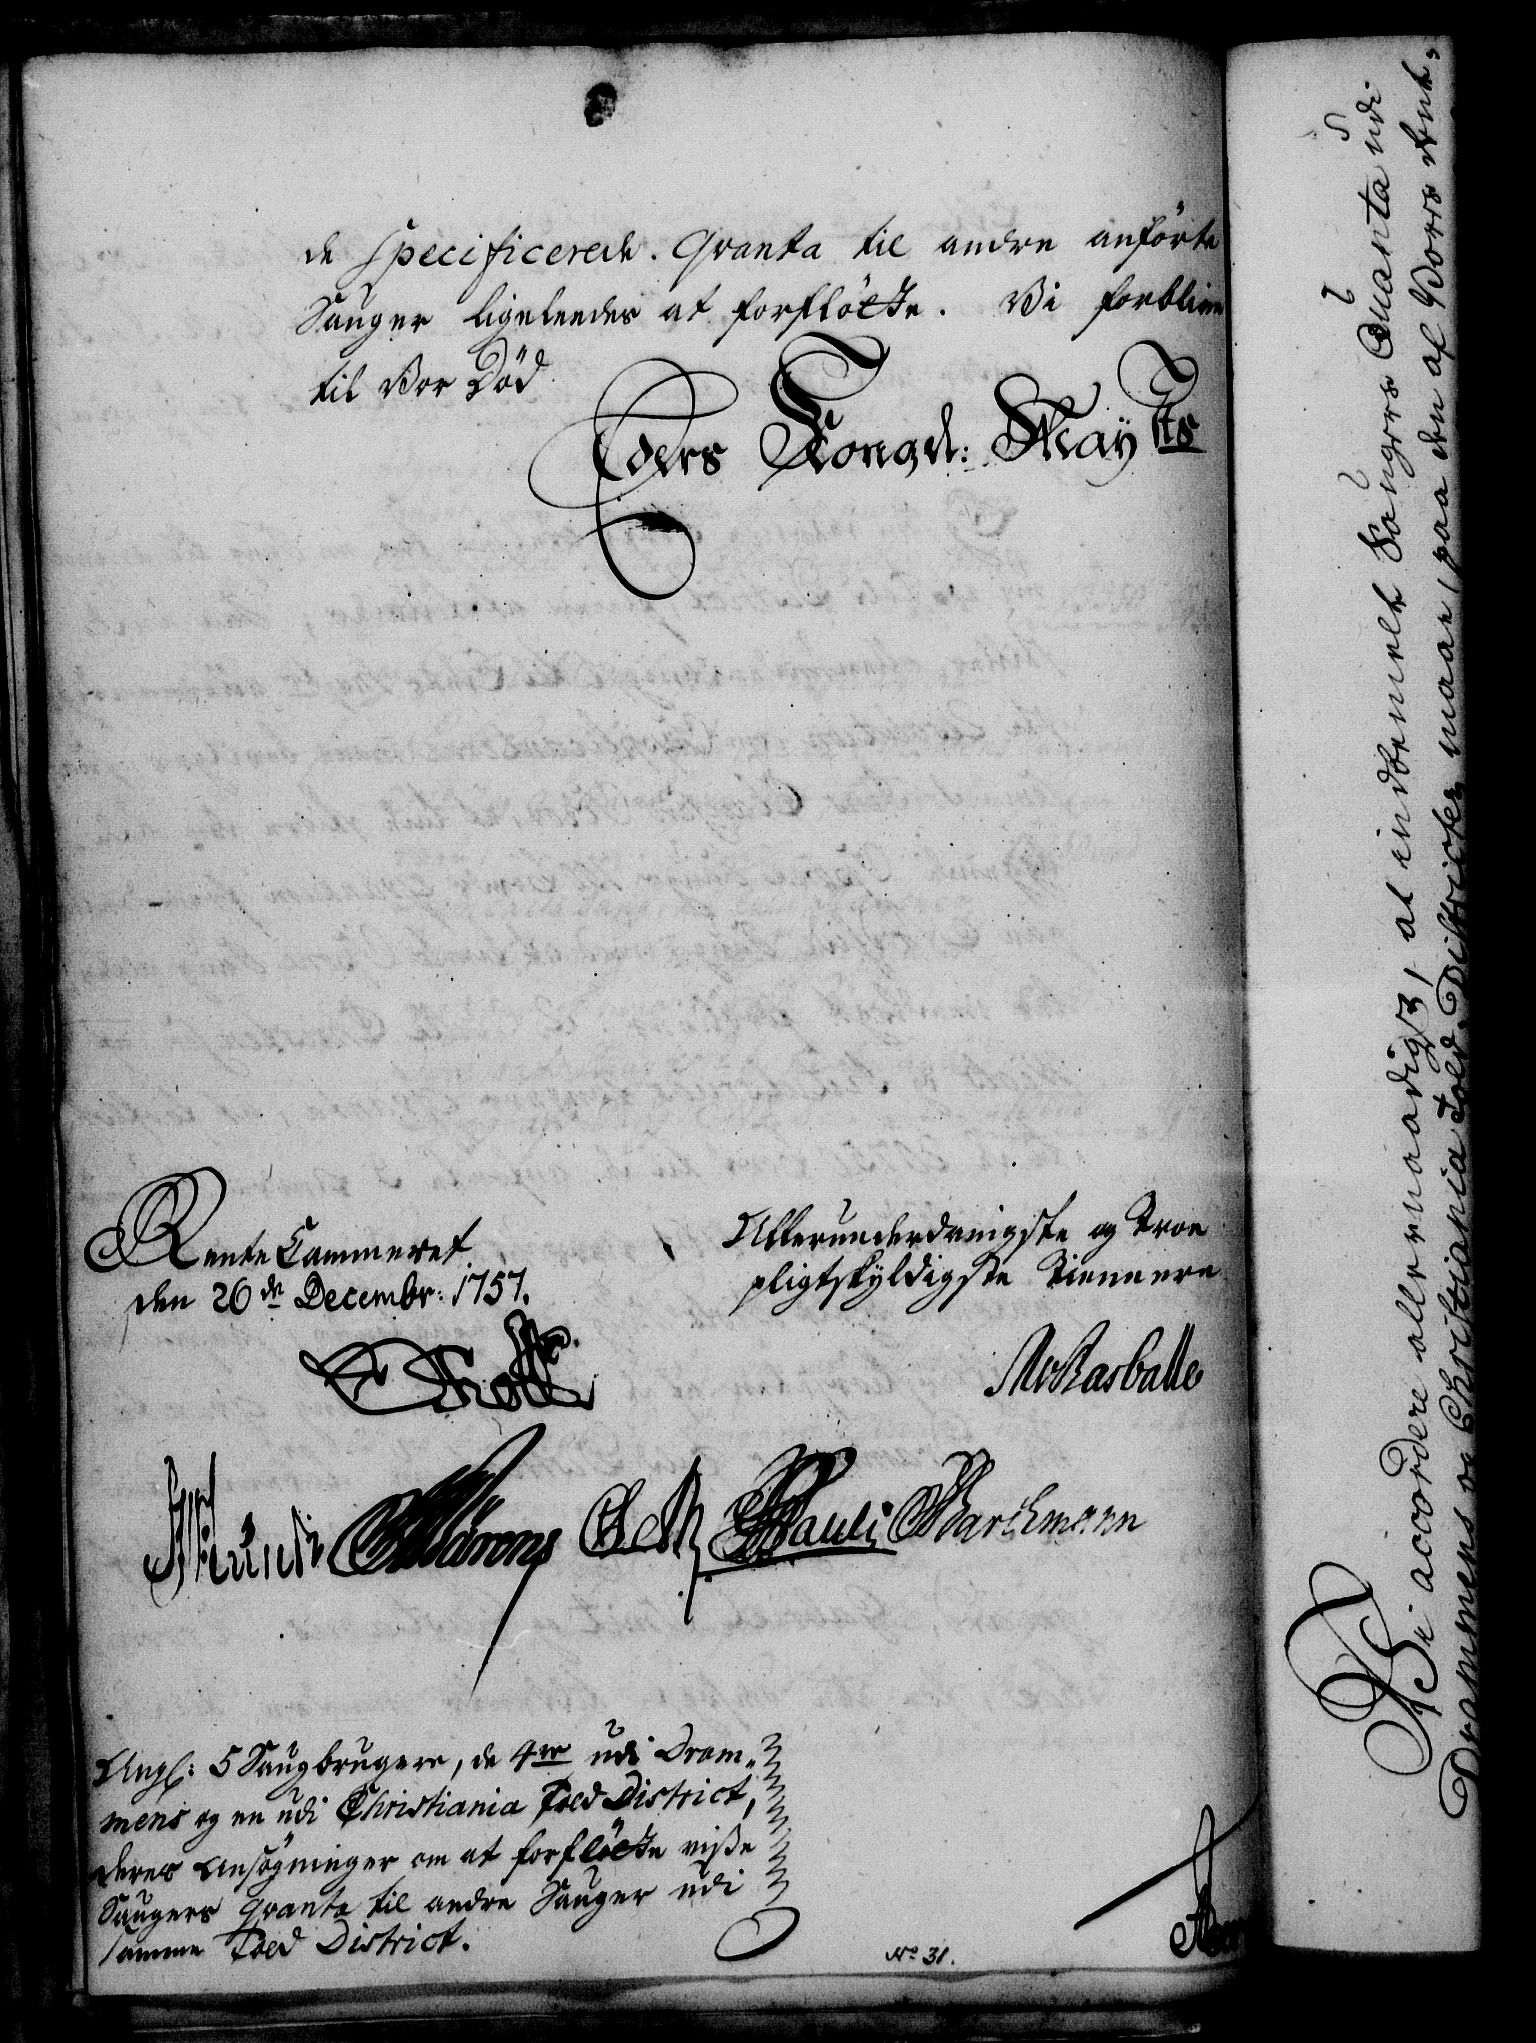 de specificerede Qvanta til andre anførte
Sauger ligeleedes at forflötte. Vi forblive
til Vor Död
Eders Kongel: Mayts
Rente Cammeret
den 26de Decembr: 1757.
Allerunderdanigste og Troe
pligtskyldigste Tiennere
Pauli Barchmann
Angl: 5 Saugbrugere, de 4re udi Dram-
mens og en udi Christiania Told District,
deres Ansögninger om at forflötte visse
Saugers Qvanta til andre Sauger udi
samme Told District.
No 31.
Vi accordere allernaadigst, at indbemelte Saugers Quanta udi
Drammens og Christiania Told Districter maae, paa den af Vores Rent-